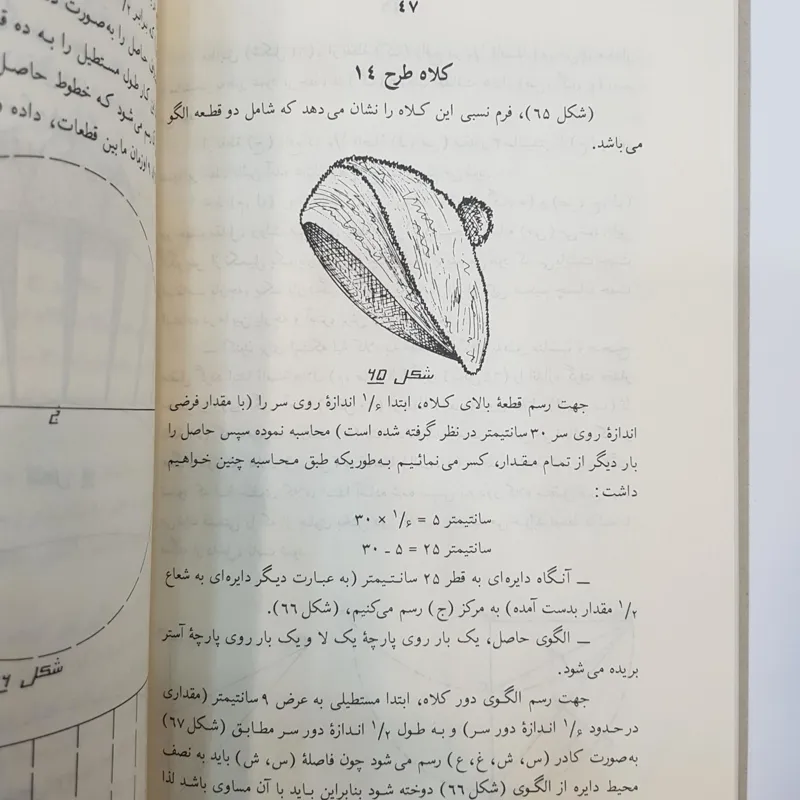 ٤٧
کلاه طرح ١٤
(شکل ٦٥)، فرم نسبی این کلاه را نشان می‌دهد که شامل دو قطعه الگو
می‌باشد.
شکل ٦٥
جهت رسم قطعهٔ بالای کلاه، ابتدا ١/٦ اندازهٔ روی سر را (با مقدار فرضی
اندازهٔ روی سر ٣٠ سانتیمتر در نظر گرفته شده است) محاسبه نموده سپس حاصل را
بار دیگر از تمام مقدار، کسر می‌نمائیم به‌طوریکه طبق محاسبه چنین خواهیم
داشت:
سانتیمتر ٥ = ١/٦ × ٣٠
سانتیمتر ٢٥ = ٥ - ٣٠
ــ آنگاه دایره‌ای به قطر ٢٥ سانتیمتر (به عبارت دیگر دایره‌ای به شعاع
١/٢ مقدار بدست آمده) به مرکز (ج) رسم می‌کنیم، (شکل ٦٦).
ــ الگوی حاصل، یک بار روی پارچهٔ یک لا و یک بار روی پارچهٔ آستر
بریده می‌شود.
جهت رسم الگوی دور کلاه، ابتدا مستطیلی به عرض ٩ سانتیمتر (مقداری
در حدود ١/٦ اندازهٔ دور سر) و به طول ١/٢ اندازهٔ دور سر مطابق (شکل ٦٧)
به‌صورت کادر (س، ش، غ، ع) رسم می‌شود چون فاصلهٔ (س، ش) باید به نصف
محیط دایره از الگوی (شکل ٦٦) دوخته شود بنابراین باید با آن مساوی باشد لذا
حاصل را به‌صورت
کار طول مستطیل را به ده
می‌شود که خطوط حاصل
مابین قطعات، داده
ج
شکل